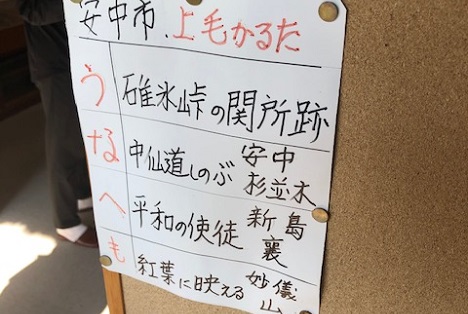 安中市、上毛かるた
う 碓氷峠の関所跡
な 中仙道しのぶ 安中杉並木
へ 平和の使徒 新島襄
も 紅葉に映える 妙儀山